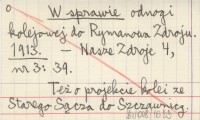 W sprawie odnogi
kolejowej do Rymanowa Zdroju.
1913. — Nasze Zdroje 4,
nr 3: 39.
Też o projekcie kolei ze
Starego Sącza do Szczawnicy.